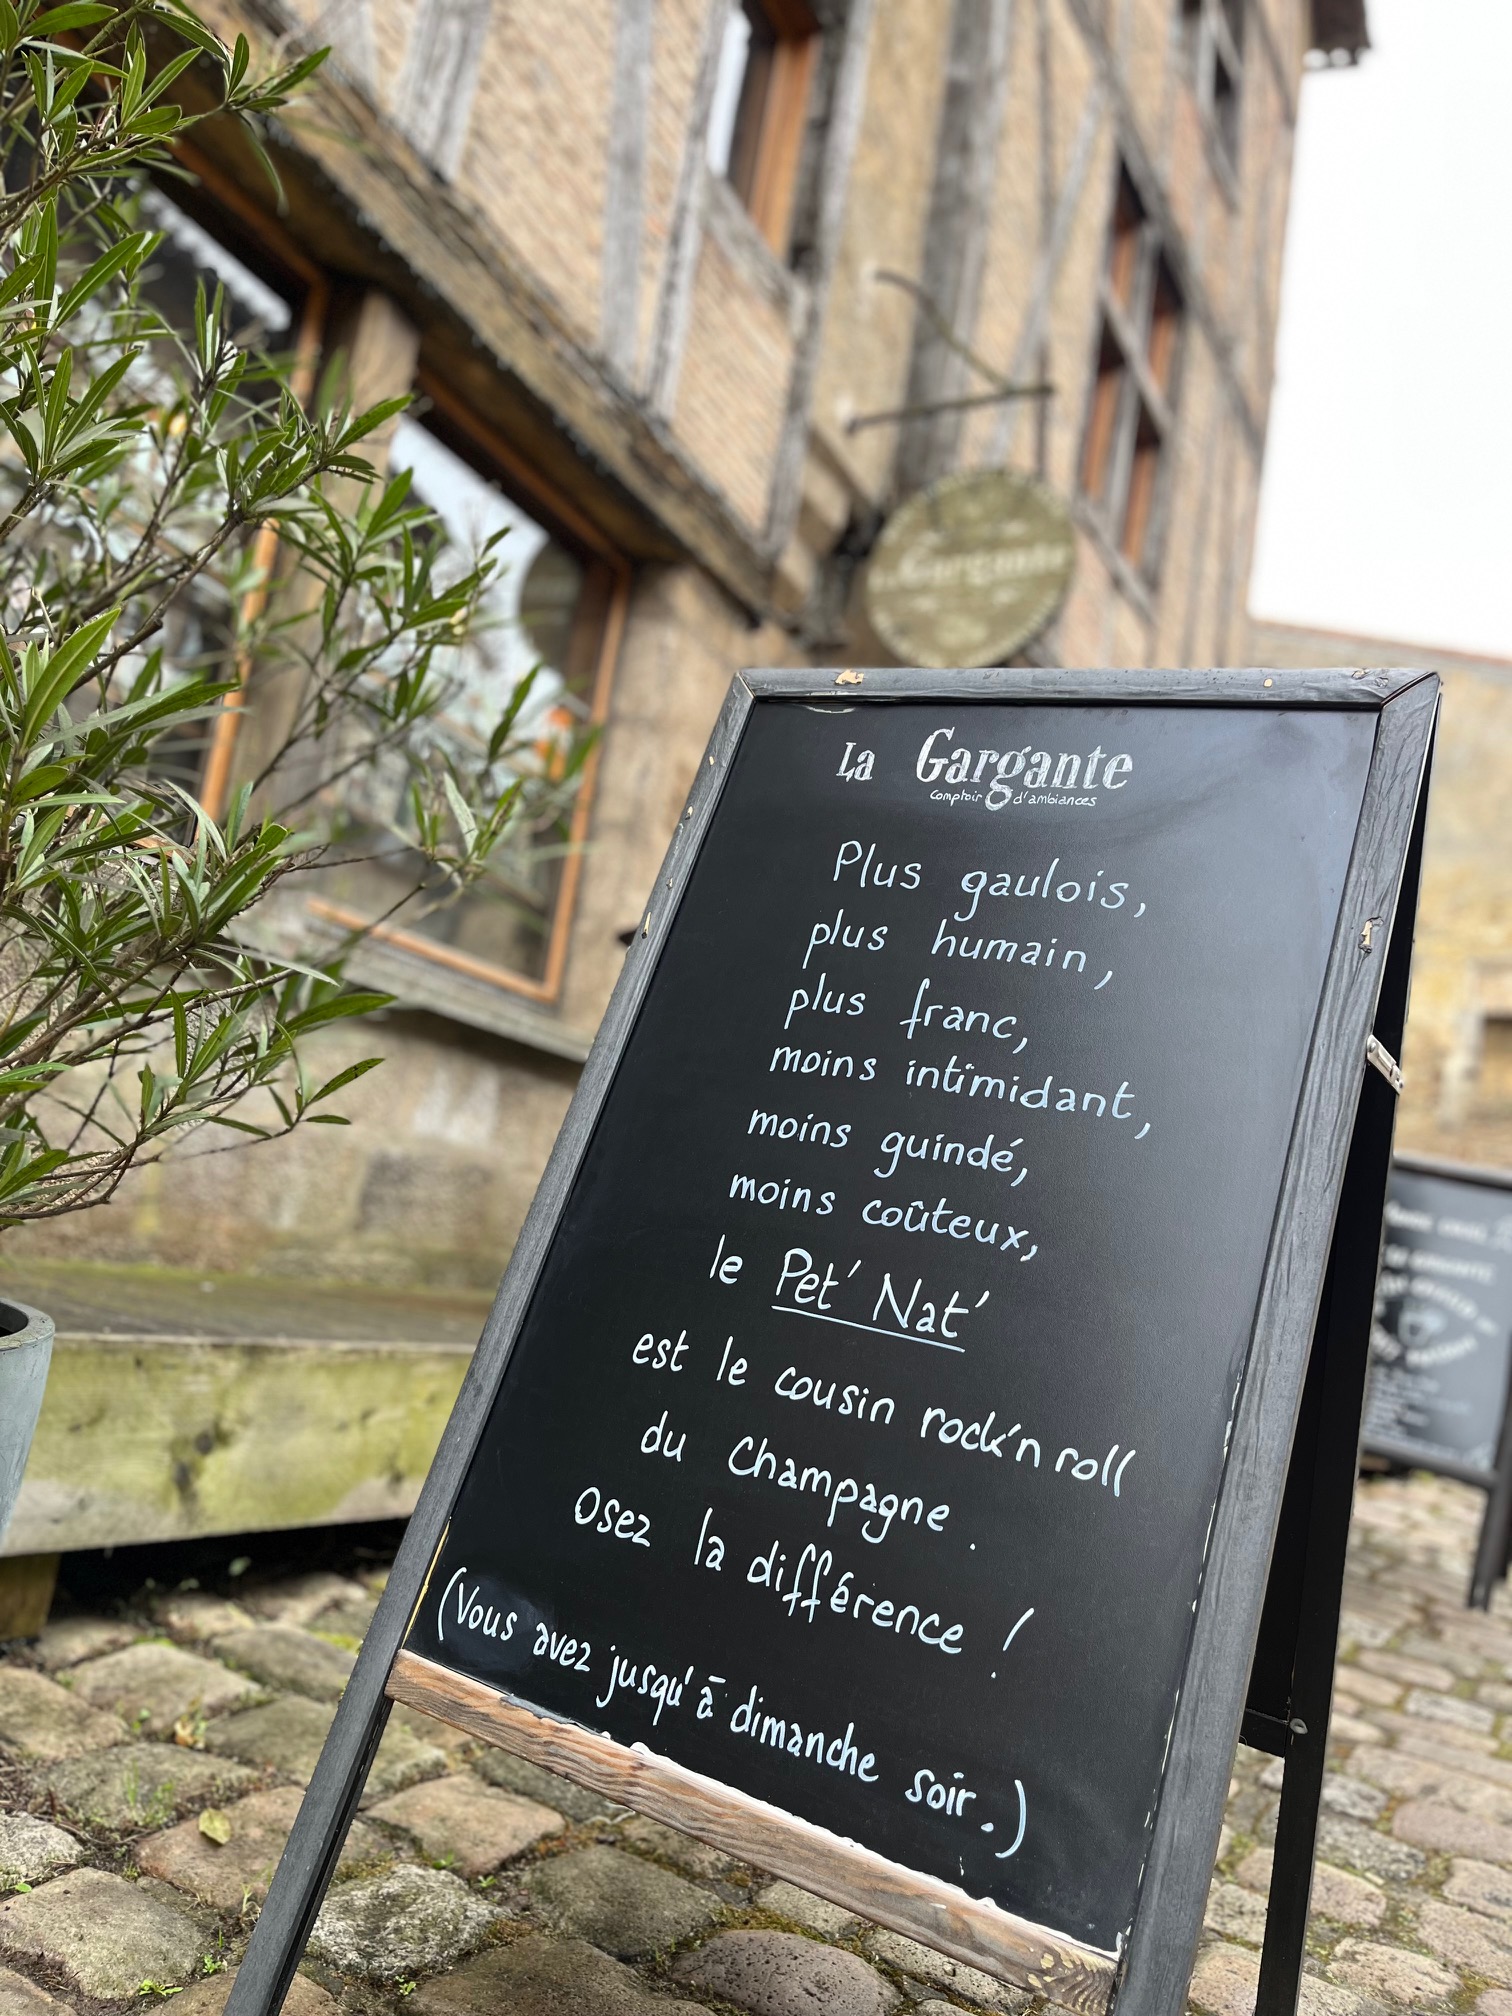 Gargante
La Gargante
comptoir d'ambiances
Plus gaulois,
plus humain,
plus franc,
moins intimidant,
moins guindé,
moins coûteux,
le Pet' Nat'
est le cousin rock'n roll
du Champagne.
Osez la différence !
(Vous avez jusqu'à dimanche soir.)